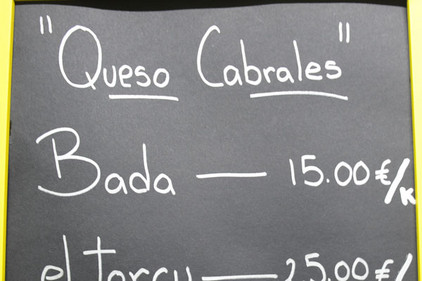 "Queso Cabrales"
Bada — 15.00€/K
el Torcu — 25.00€/